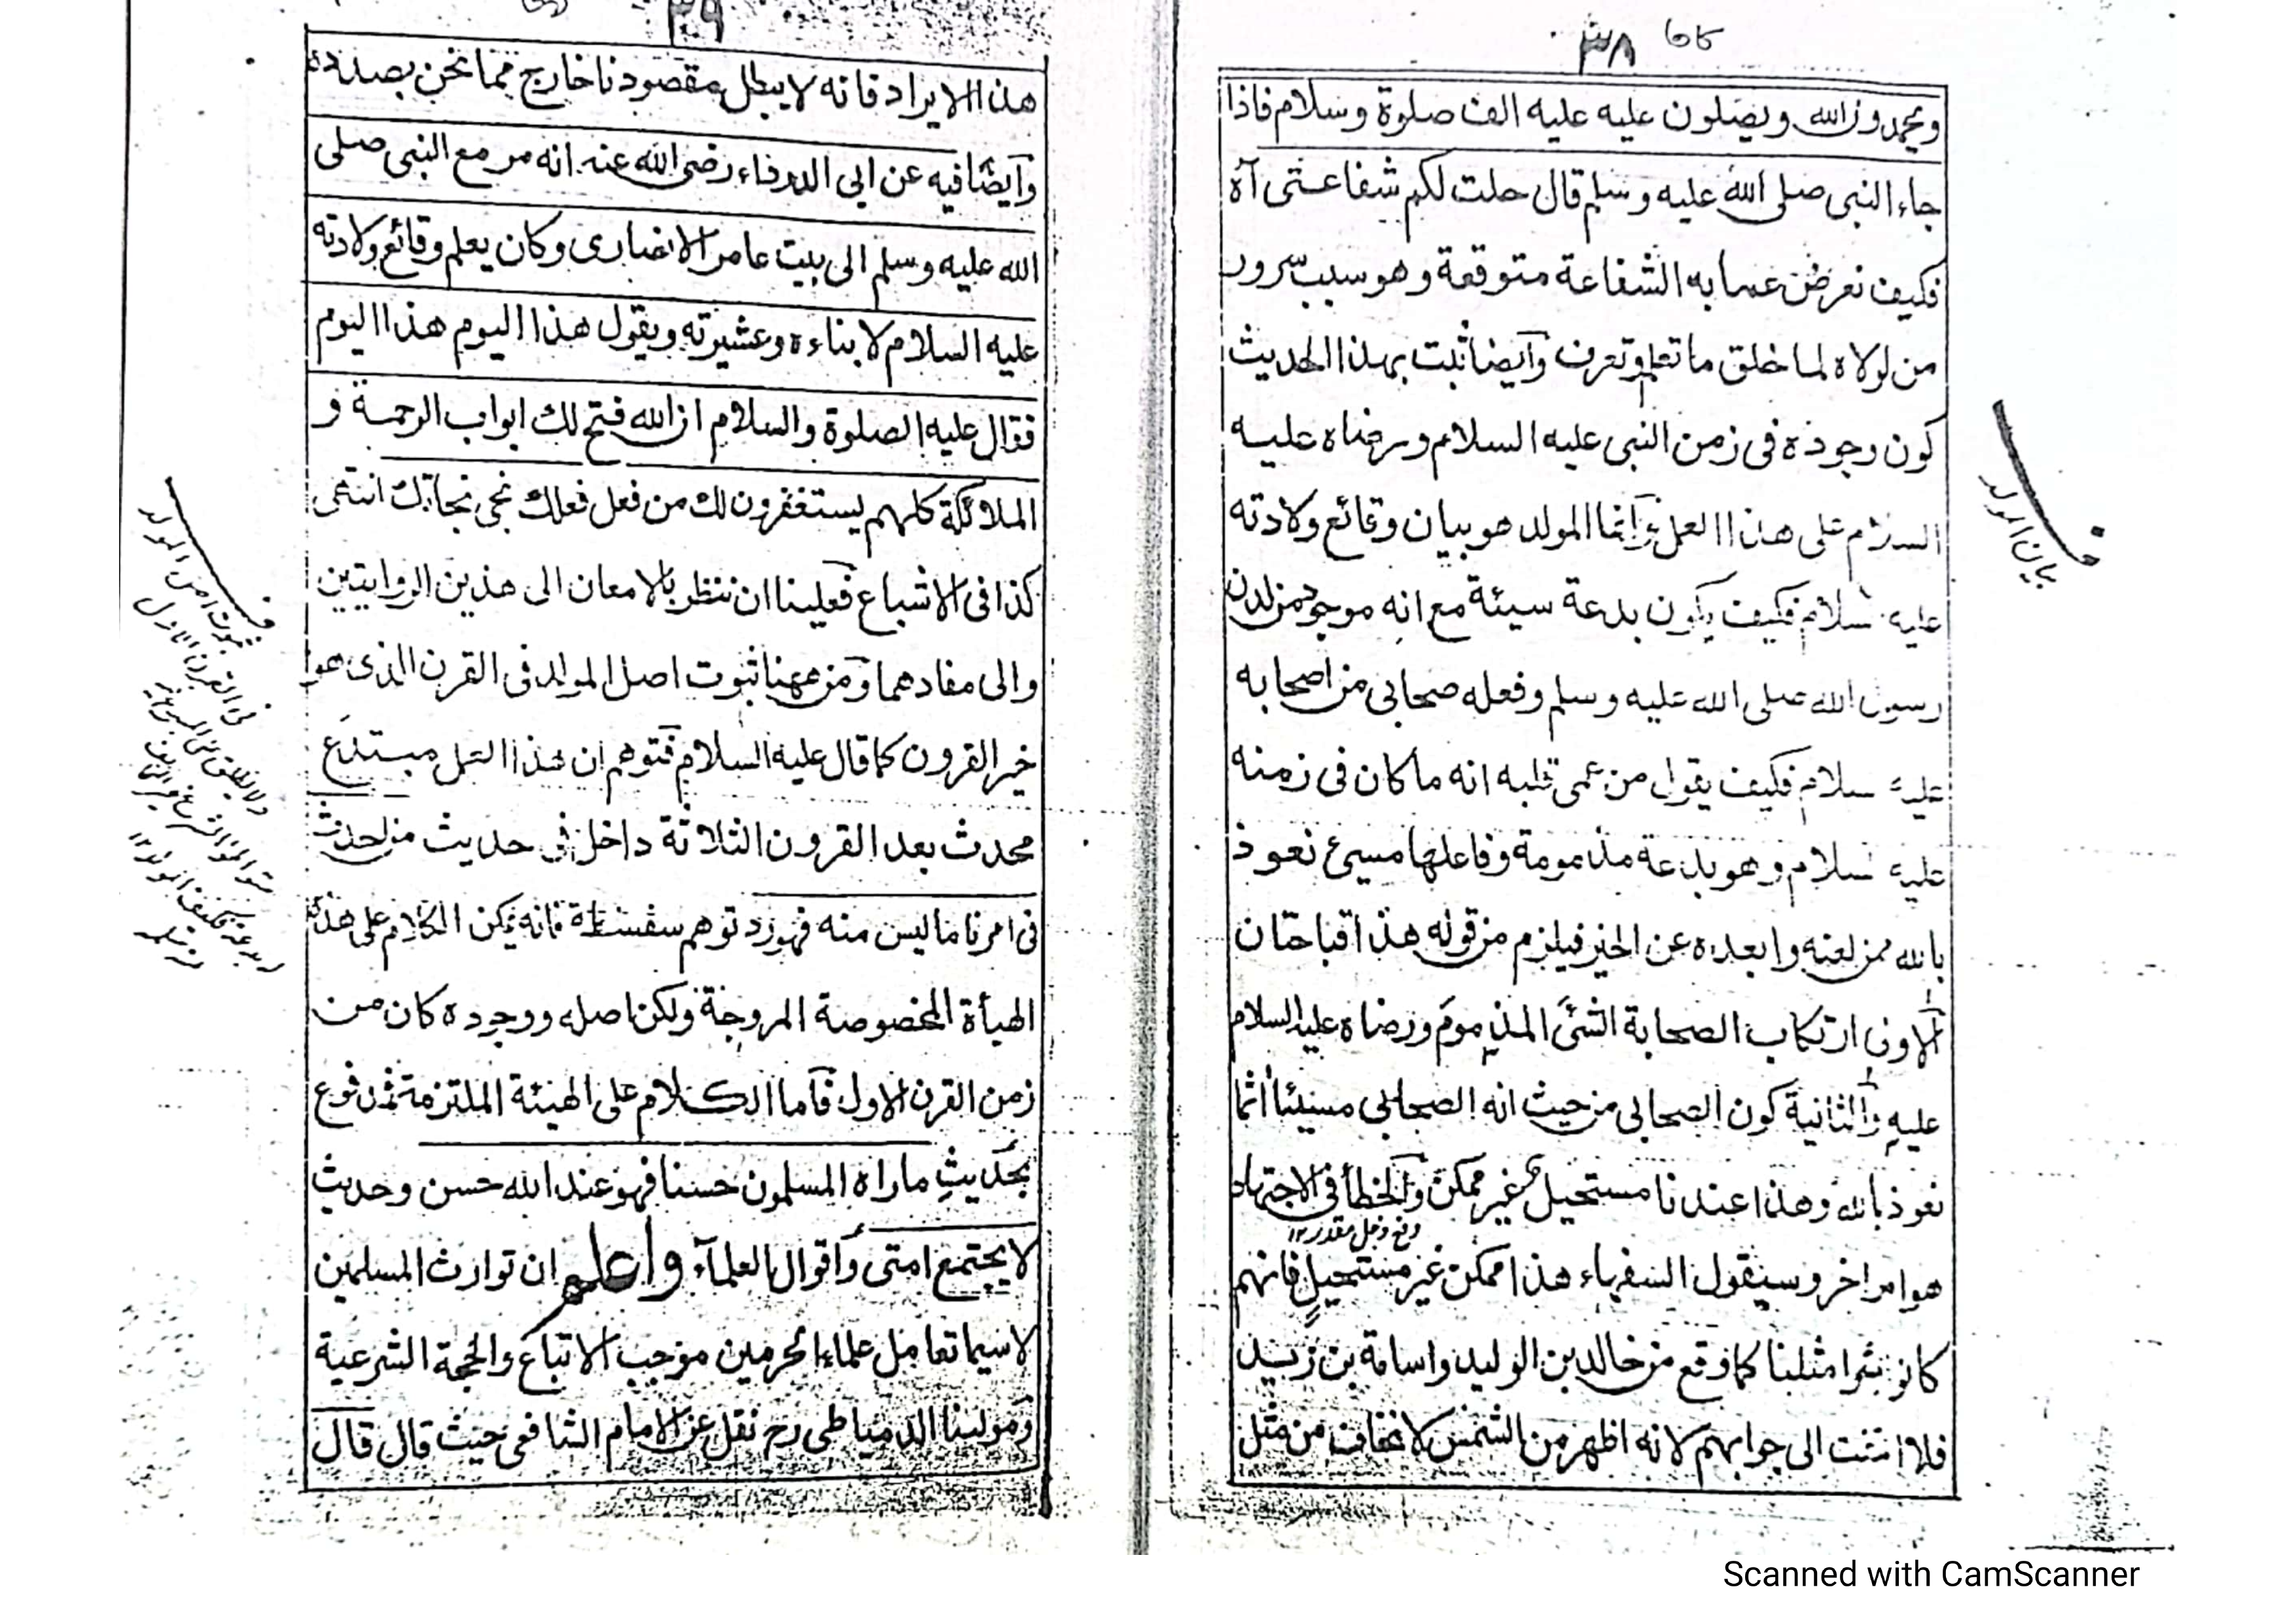 ٣٨
ويحمدون الله ويصلون عليه عليه الف صلوة وسلام فاذا
جاء النبى صلى الله عليه وسلم قال حلت لكم شفاعتى آه
فكيف نعرض عما به الشفاعة متوقعة وهو سبب سرور
من لولاه لما خلق ما تعلم وتعرف وآيضا ثبت بهذا الحديث
كون وجوده فى زمن النبى عليه السلام ورضاه عليه
السلام على هذا العمل وآنما المولد هو بيان وقائع ولادته
عليه سلام فكيف يكون بدعة سيئة مع انه موجود من لدن
رسول الله صلى الله عليه وسلم وفعله صحابى من اصحابه
عليه سلام فكيف يقول من عمى قلبه انه ما كان فى زمنه
عليه سلام وهو بدعة مذمومة وفاعلها مسيئ نعوذ
بالله ممن لعنه وابعده عن الخير فيلزم من قوله هذا قباحتان
آلاولى ارتكاب الصحابة الشئ المذموم ورضاه عليه السلام
عليه وآلثانية كون الصحابى من حيث انه الصحابى مسيئا آثما
نعوذ بالله وهذا عندنا مستحيل غير ممكن وآلخطأ فى الاجتهاد
دفع دخل مقدر ١٢
هو امر اخر وسيقول السفهاء هذا ممكن غير مستحيل فانهم
كانو بشرا مثلنا كما وقع من خالد بن الوليد واسامة بن زيد
فلا التفت الى جوابهم لانه اظهر من الشمس لا نخاف من مثل
بيان المولد
٣٩
هذا الايراد فانه لا يبطل مقصودنا خارج مما نحن بصدده
وآيضا فيه عن ابى الدرداء رضى الله عنه انه مر مع النبى صلى
الله عليه وسلم الى بيت عامر الانصارى وكان يعلم وقائع ولادته
عليه السلام لابناءه وعشيرته ويقول هذا اليوم هذا اليوم
فقال عليه الصلوة والسلام ان الله فتح لك ابواب الرحمة و
الملائكة كلهم يستغفرون لك من فعل فعلك نجى نجاتك انتهى
كذا فى الاشباع فعلينا ان ننظر بالامعان الى هذين الروايتين
والى مفادهما ومن ههنا ثبوت اصل المولد فى القرن الذى هو
خير القرون كما قال عليه السلام فتوهم ان هذا العمل مبتدع
محدث بعد القرون الثلاثة داخل فى حديث من احدث
فى امرنا ما ليس منه فهو رد توهم سفسطة فانه يمكن الكلام على هذه
الهيأة المخصوصة المروجة ولكن اصله ووجوده كان من
زمن القرن الاول فآما الكلام على الهيئة الملتزمة فمدفوع
بحديث ماراه المسلمون حسنا فهو عند الله حسن وحديث
لا يجتمع امتى وآقوال العلمآء واعلم ان توارث المسلمين
لاسيما تعامل علماء الحرمين موجب الاتباع والحجة الشرعية
ومولينا الدمياطى رح نقل عن الامام الشافعى حيث قال قال
ثبوت امر المولد
فى القرن الاول
Scanned with CamScanner